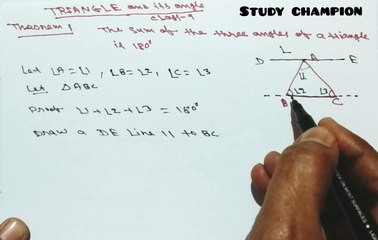 STUDY CHAMPION
TRIANGLE and its angle
class-9
Theorem 1 The sum of the three angles of a triangle
is 180°
Let ∠A=∠1, ∠B=∠2, ∠C=∠3
Let △ABC
Proof ∠1+∠2+∠3=180°
Draw a DE line || to BC
L
D A E
∠1
∠2 ∠3
B C